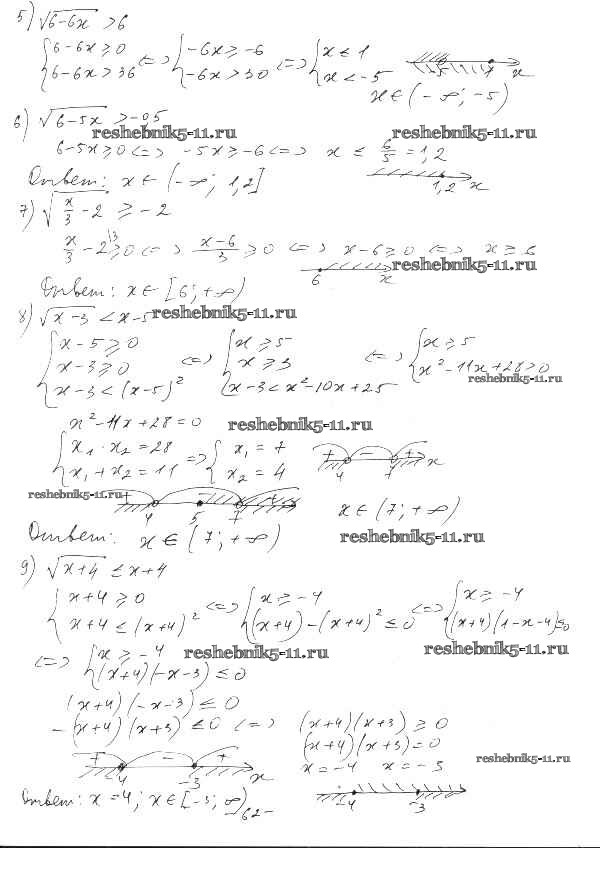 5) √6-6x > 6
{ 6-6x ≥ 0 <=> { -6x ≥ -6 <=> { x ≤ 1
6-6x > 36 -6x > 30 x < -5 x
x ∈ (-∞; -5)
6) √6-5x > -0,5
reshebnik5-11.ru reshebnik5-11.ru
6-5x ≥ 0 <=> -5x ≥ -6 <=> x ≤ 6/5 = 1,2
Ответ: x ∈ (-∞; 1,2] 1,2 x
7) √x/3 - 2 ≥ -2
x/3 - 2 \3 ≥ 0 <=> x-6/3 ≥ 0 <=> x-6 ≥ 0 <=> x ≥ 6
reshebnik5-11.ru
6 x
Ответ: x ∈ [6; +∞)
8) √x-3 < x-5 reshebnik5-11.ru
{ x-5 ≥ 0 <=> { x ≥ 5 <=> { x ≥ 5
x-3 ≥ 0 x ≥ 3 x² - 11x + 28 > 0
x-3 < (x-5)² x-3 < x² - 10x + 25 reshebnik5-11.ru
x² - 11x + 28 = 0 reshebnik5-11.ru
{ x₁ · x₂ = 28 => { x₁ = 7 + - +
x₁ + x₂ = 11 x₂ = 4 4 7 x
reshebnik5-11.ru +
4 5 7 x ∈ (7; +∞)
Ответ: x ∈ (7; +∞) reshebnik5-11.ru
9) √x+4 ≤ x+4
{ x+4 ≥ 0 <=> { x ≥ -4 <=> { x ≥ -4
x+4 ≤ (x+4)² (x+4) - (x+4)² ≤ 0 (x+4)(1-x-4) ≤ 0
<=> { x ≥ -4 reshebnik5-11.ru reshebnik5-11.ru
(x+4)(-x-3) ≤ 0
(x+4)(-x-3) ≤ 0
-(x+4)(x+3) ≤ 0 <=> (x+4)(x+3) ≥ 0
(x+4)(x+3) = 0
+ - + x = -4 x = -3 reshebnik5-11.ru
-4 -3 x
-4 -3
Ответ: x = 4; x ∈ [-3; ∞)
-62-